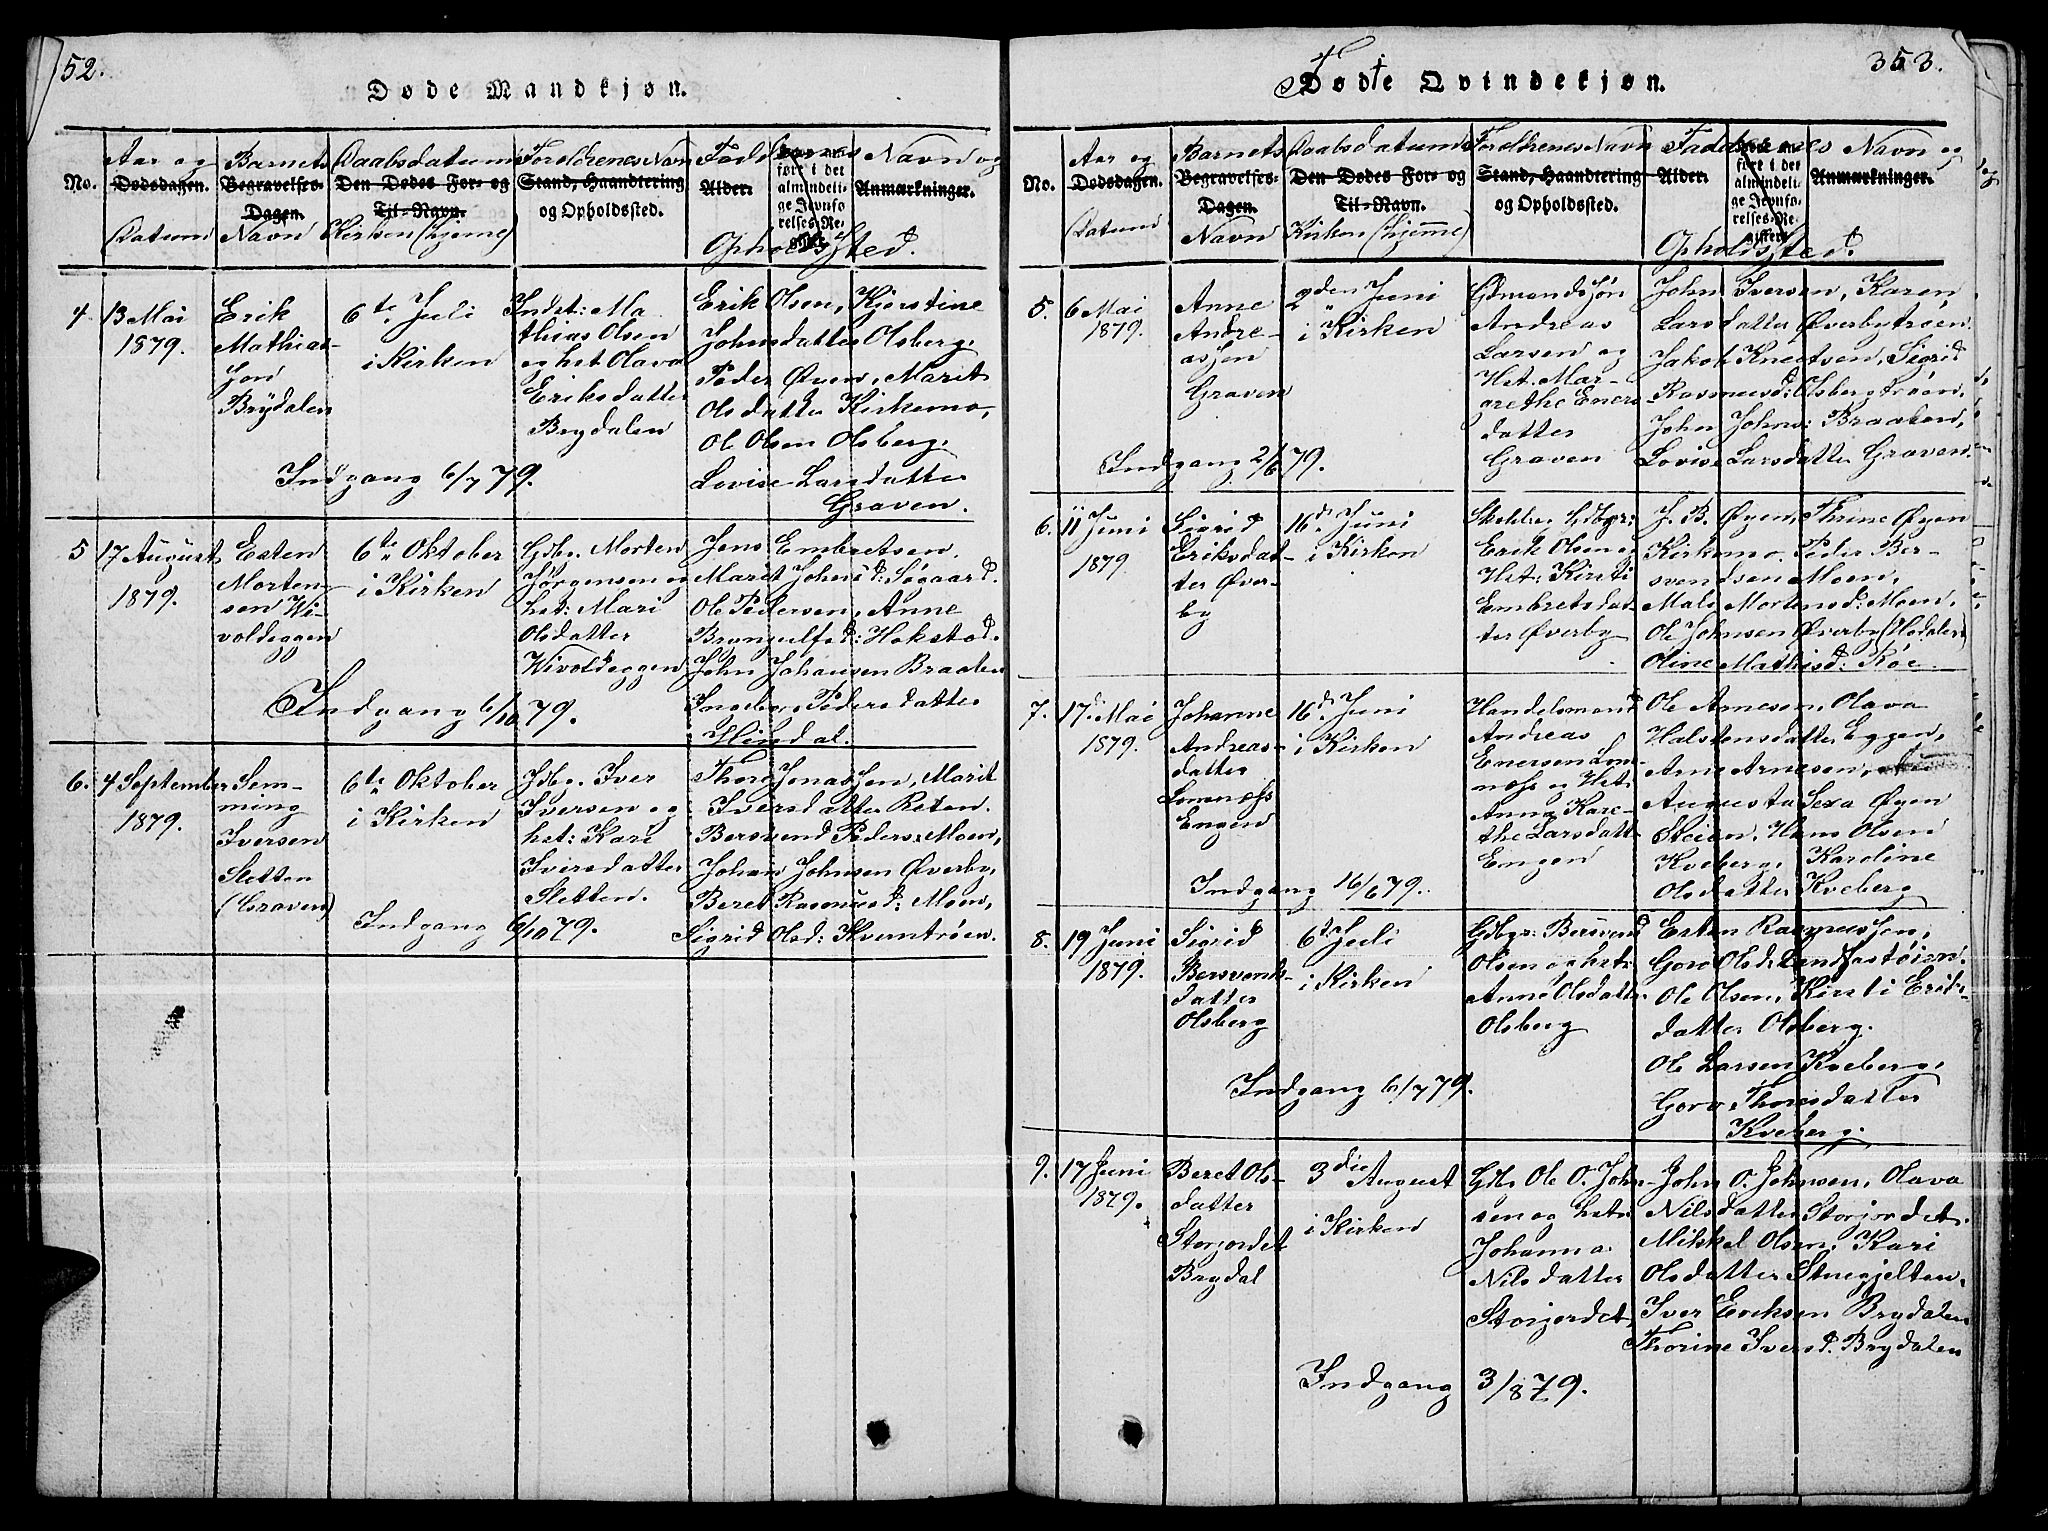 52.
Døde Mandkjøn.
No.
Aar og
Dødsdagen.
Datum
Barnets
Begravelses-
Dagen.
Navn
Daabsdatum
Den Dødes For- og
Til-Navn.
Kirken (hjeme)
Forældrenes Navn
Stand, Haandtering
og Opholdssted.
Faddernes Navn og
Alder.
føre i det
almindeli-
ge Jevnfø-
relses-Re-
gister.
Anmærkninger.
Opholdssted.
4
13 Mai
1879.
Erik
Mathias-
søn
Brydalen
6te Juli
i Kirken
Indst: Ma
thias Olsen
og hst Olava
Eriksdatter
Brydalen
Erik Olsen, Kjerstine
Johnsdatter Olsberg,
Peder Øien, Marit
Olsdatter Kirkemo,
Ol Olsen Olsberg,
Lovise Larsdatter
Graven.
Indgang 6/7 79.
5
17 August
1879.
Esten
Morten-
sen Wi-
voldeggen
6te Oktober
i Kirken
Gdbr. Morten
Jørgensen og
hst: Mari
Olsdatter
Wivoldeggen
Jens Embretsen,
Marit Johnsd: Søgaard.
Ole Pedersen, Anne
Bryngelfsd: Hokstad.
John Johansen Braaten
Ingeborg Pedersdatter
Hirsdal.
Indgang 6/10 79.
6.
4 September
1879.
Sem-
ming
Iversen
Sletten
(Graven)
6te Oktober
i Kirken
Gdbr. Iver
Iversen og
hst: Kari
Iversdatter
Sletten.
Thore Jonassen, Marit
Iversdatter Reten.
Bersvend Peders: Moen,
Johan Johnsen Øverby,
Beret Rasmusd: Moen,
Sigrid Olsd: Kverntrøen.
Indgang 6/10 79.
353.
Fødte Qvindekjøn.
No.
Aar og
Dødsdagen.
Datum
Barnets
Begravelses-
Dagen.
Navn
Daabsdatum
Den Dødes For- og
Til-Navn.
Kirken (hjemme)
Forældrenes Navn
Stand, Haandtering
og Opholdssted.
Faddernes Navn og
Alder.
føre i det
almindeli-
ge Jevnfø-
relses-Re-
gister.
Anmærkninger.
Opholdssted.
5.
6 Mai
1879.
Anne
Andre-
assen
Graven
2den Juni
i Kirken
Gdmandssøn
Andreas
Larsen og
Hst. Mar-
grethe Eners
datter
Graven
John Iversen, Karen
Larsdatter Øverbytrøen.
Jakob Knutsen, Sigrid
Rasmusd: Olsbergtrøen,
John Johns: Braaten,
Lovise Larsdatter Graven.
Indgang 2/6 79.
6.
11 Juni
1879.
Sigrid
Eriksdat-
ter Øver-
by
16d. Juni
i Kirken
Gdbgr:
Erik Olsen og
Hst: Kirsti
Embretsdat
ter Øverby
J. B. Øyen, Thrine Øyen
Kirkemo. Peder Ber-
svendsen Moen,
Mali Mortensd: Moen,
Ole Johnsen Øverby (Hodalen)
Oline Mathisd: Røe.
7.
17d. Mai
1879.
Johanne
Andreas-
datter
Lomnæss
Engen
16d. Juni
i Kirken
Handelsmand
Andreas
Enersen Lom-
næss og Hst
Anna Kare-
the Larsdatt
Engen
Ole Arnesen, Olava
Halstensdatter Eggen,
Arne Arnesen,
Augusta Sexa Øyen
Steien, Hans Olsen
Kveberg, Karoline
Olsdatter Kveberg
Indgang 16/6 79.
8.
19 Juni
1879.
Sigrid
Bersvends-
datter
Olsberg
6d. Juli
i Kirken
Gdbgr: Bersvend
Olsen og hst:
Anne Olsdatter
Olsberg
Esten Rasmussen,
Goro Olsd:
Ole Olsen, Kirsti Eriks-
datter Olsberg.
Ole Larsen Kveberg,
Goro Thoresdatter
Kveberg.
Indgang 6/7 79.
9.
17 Juni
1879.
Beret Ols-
datter
Storjordet
Brydal
3die August
i Kirken
Gdb. Ole O. John-
sen og hst:
Johanna
Nilsdatter
Storjordet,
John O. Johnsen, Olava
Nilsdatter Storjordet.
Mikkel Olsen, Kari
Olsdatter Stuegjelten,
Iver Eriksen Brydalen
Thorine Iversd. Brydalen
Indgang 3/8 79.